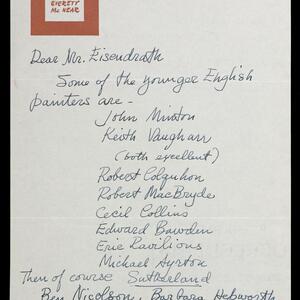 EVERETT
McNEAR
Dear Mr. Eisendrath
Some of the younger English
painters are -
John Minton
Keith Vaughan
(both excellent)
Robert Colquhon
Robert MacBryde
Cecil Collins
Edward Bawden
Eric Ravilious
Michael Ayrton
Then of course Sutherland
Ben Nicolson, Barbara Hepworth